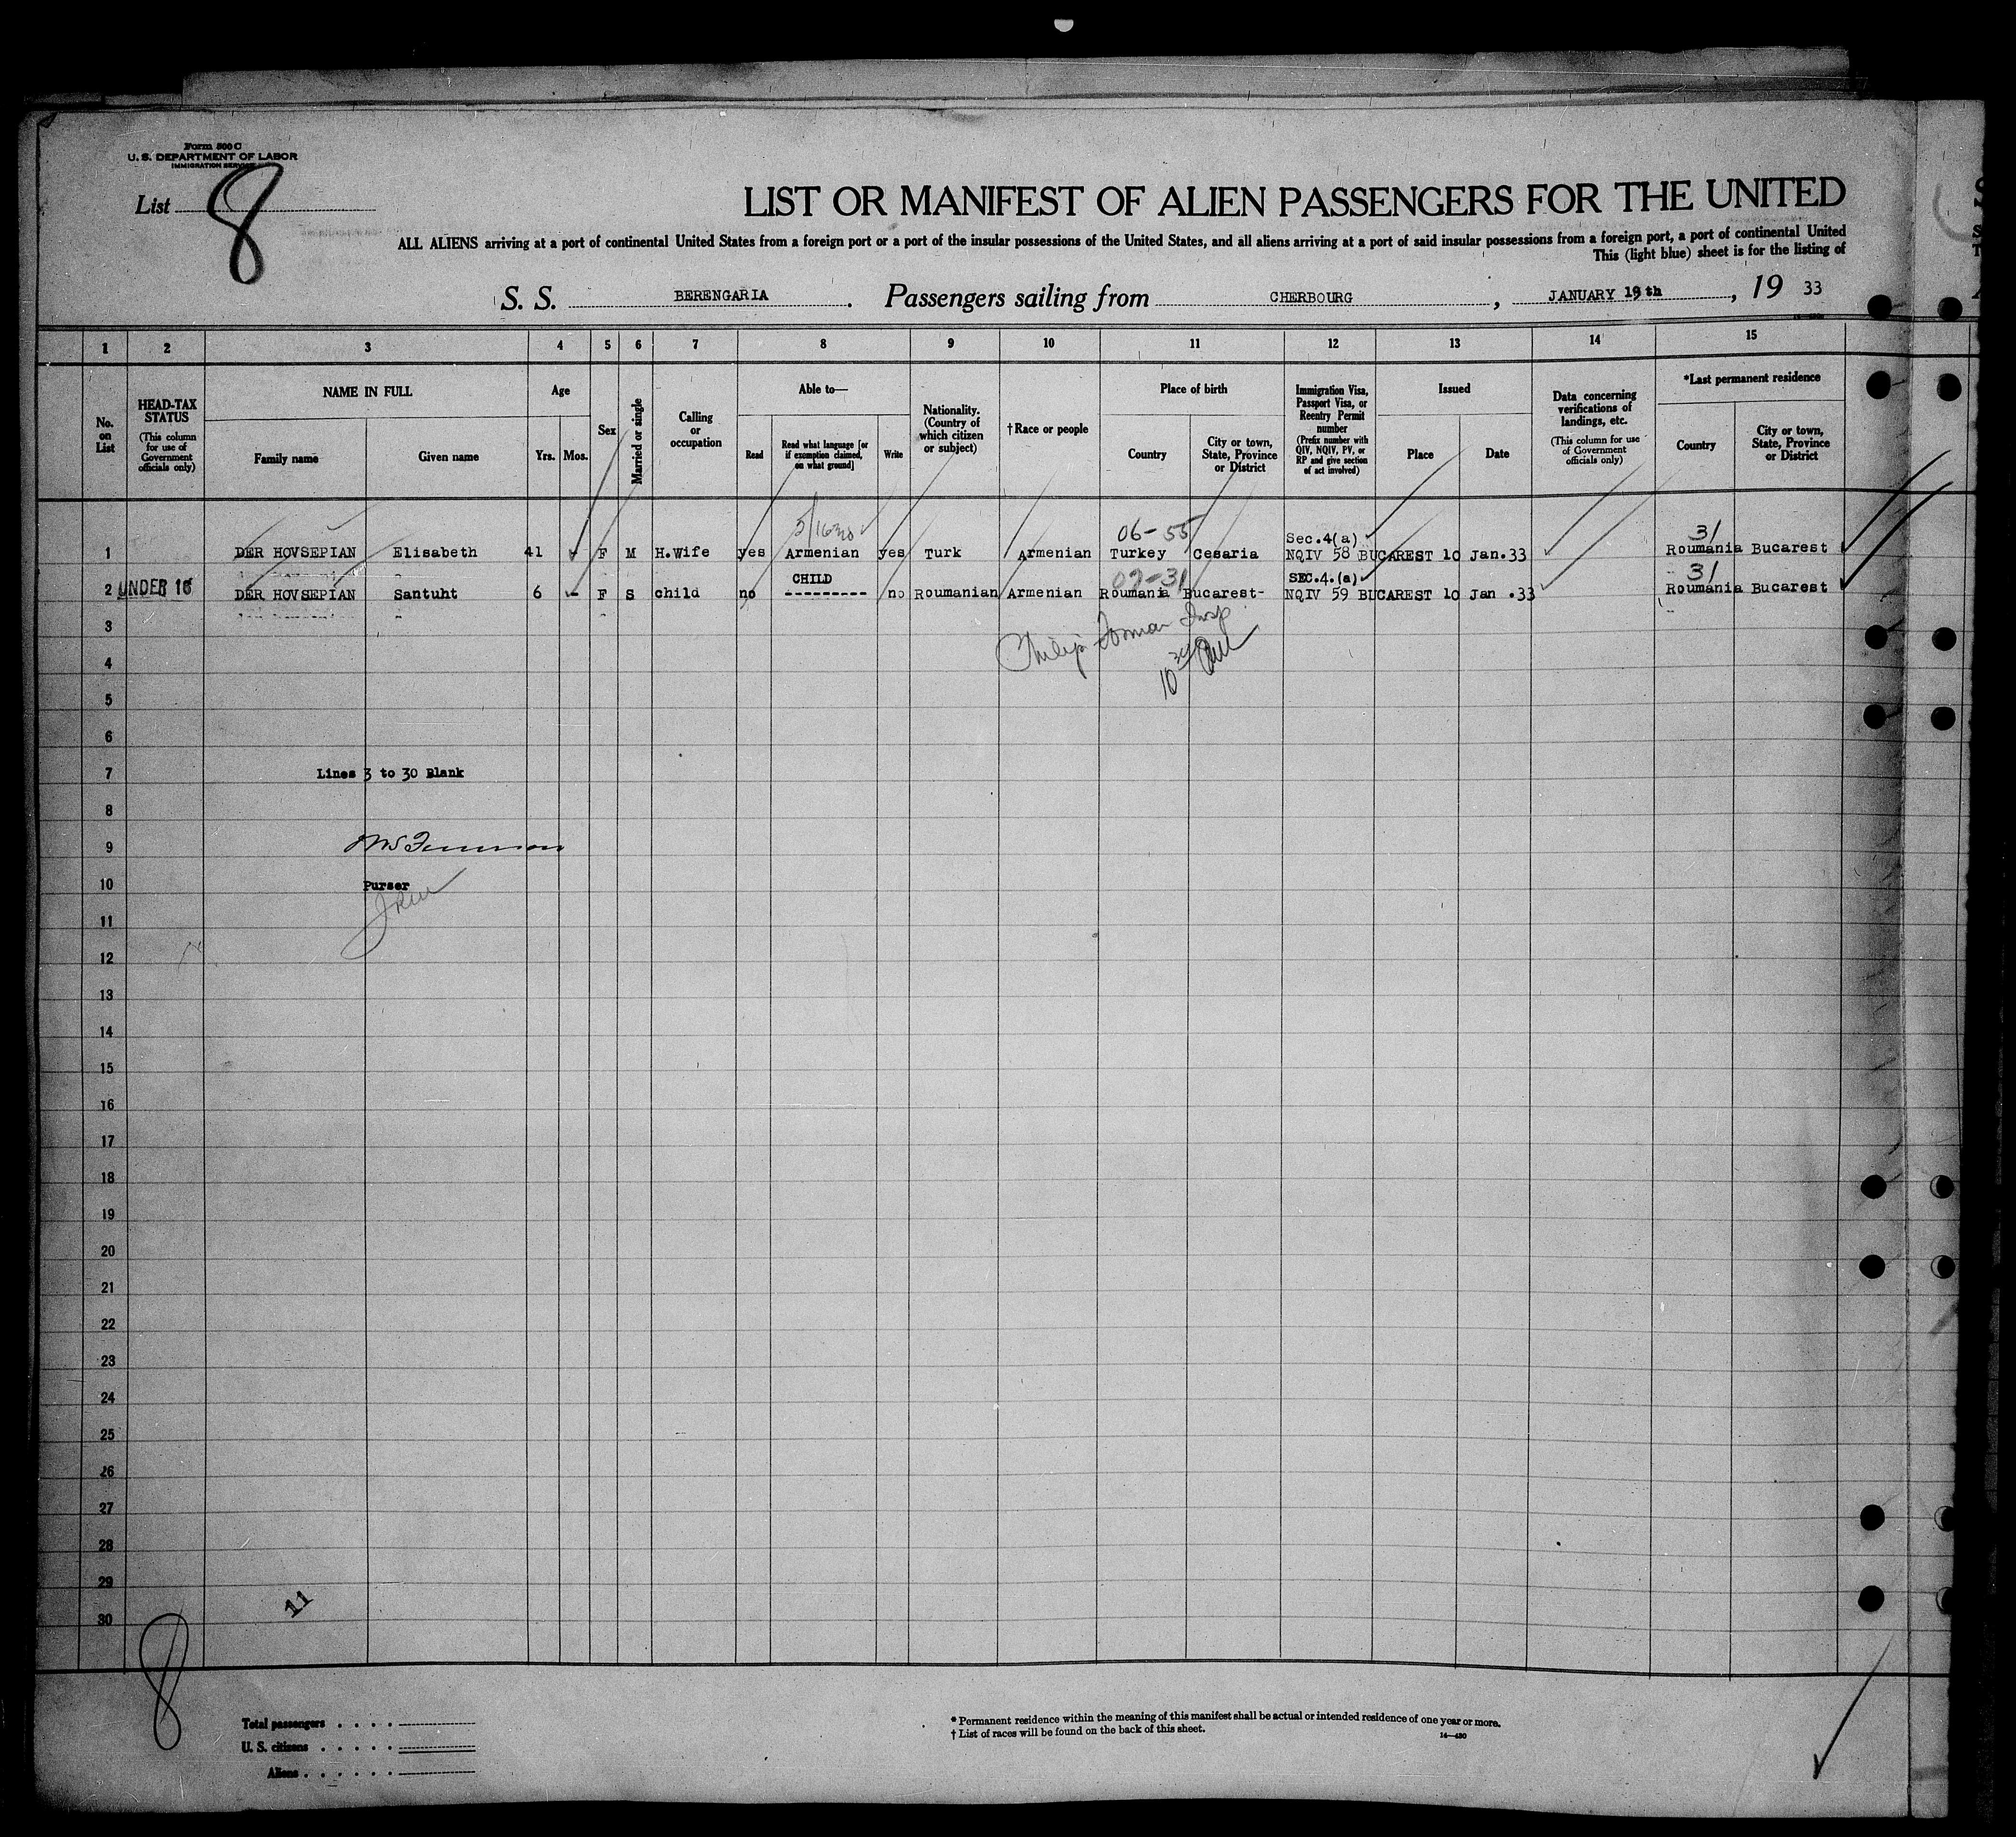 Form 500 C
U. S. DEPARTMENT OF LABOR
IMMIGRATION SERVICE
List 8
LIST OR MANIFEST OF ALIEN PASSENGERS FOR THE UNITED
ALL ALIENS arriving at a port of continental United States from a foreign port or a port of the insular possessions of the United States, and all aliens arriving at a port of said insular possessions from a foreign port, a port of continental United
This (light blue) sheet is for the listing of
S. S. BERENGARIA. Passengers sailing from CHERBOURG, JANUARY 19th, 19 33
1 2 3 4 5 6 7 8 9 10 11 12 13 14 15
No. on List
HEAD-TAX STATUS (This column for use of Government officials only)
NAME IN FULL
Family name Given name
Age
Yrs. Mos.
Sex
Married or single
Calling or occupation
Able to—
Read
Read what language [or if exemption claimed, on what ground]
Write
Nationality. (Country of which citizen or subject)
†Race or people
Place of birth
Country
City or town, State, Province or District
Immigration Visa, Passport Visa, or Reentry Permit number (Prefix number with QIV, NQIV, PV, or RP and give section of act involved)
Issued
Place Date
Data concerning verifications of landings, etc. (This column for use of Government officials only)
*Last permanent residence
Country
City or town, State, Province or District
06-55 Sec.4(a) 31
1 DER HOVSEPIAN Elisabeth 41 - F M H.Wife yes Armenian yes Turk Armenian Turkey Cesaria NQIV 58 BUCAREST 10 Jan.33 Roumania Bucarest
CHILD 02-31 SEC.4.(a) 31
2 UNDER 16 DER HOVSEPIAN Santuht 6 - F S child no --------- no Roumanian Armenian Roumania Bucarest- NQIV 59 BUCAREST 10 Jan .33 Roumania Bucarest
3
Philip Forman Insp
4
5
6
7 Lines 3 to 30 Blank
8
9
10 Purser
11
12
13
14
15
16
17
18
19
20
21
22
23
24
25
26
27
28
29
11
30
8
Total passengers . . . .
U. S. citizens . . . . .
Aliens . . . . . .
* Permanent residence within the meaning of this manifest shall be actual or intended residence of one year or more.
† List of races will be found on the back of this sheet.
14—430